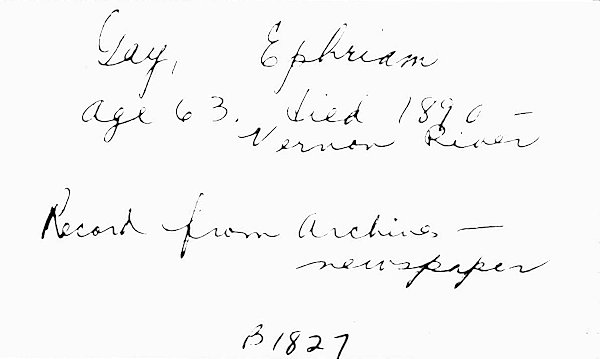 Gay, Ephriam
age 63. died 1890 -
Vernon River
Record from Archives -
newspaper
B1827